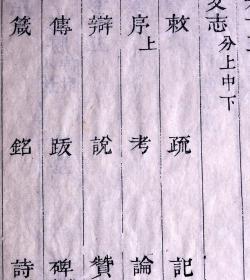 文志分上中下
敕 疏 記
序上 考 論
辯 說 贊
傳 跋 碑
箴 銘 詩